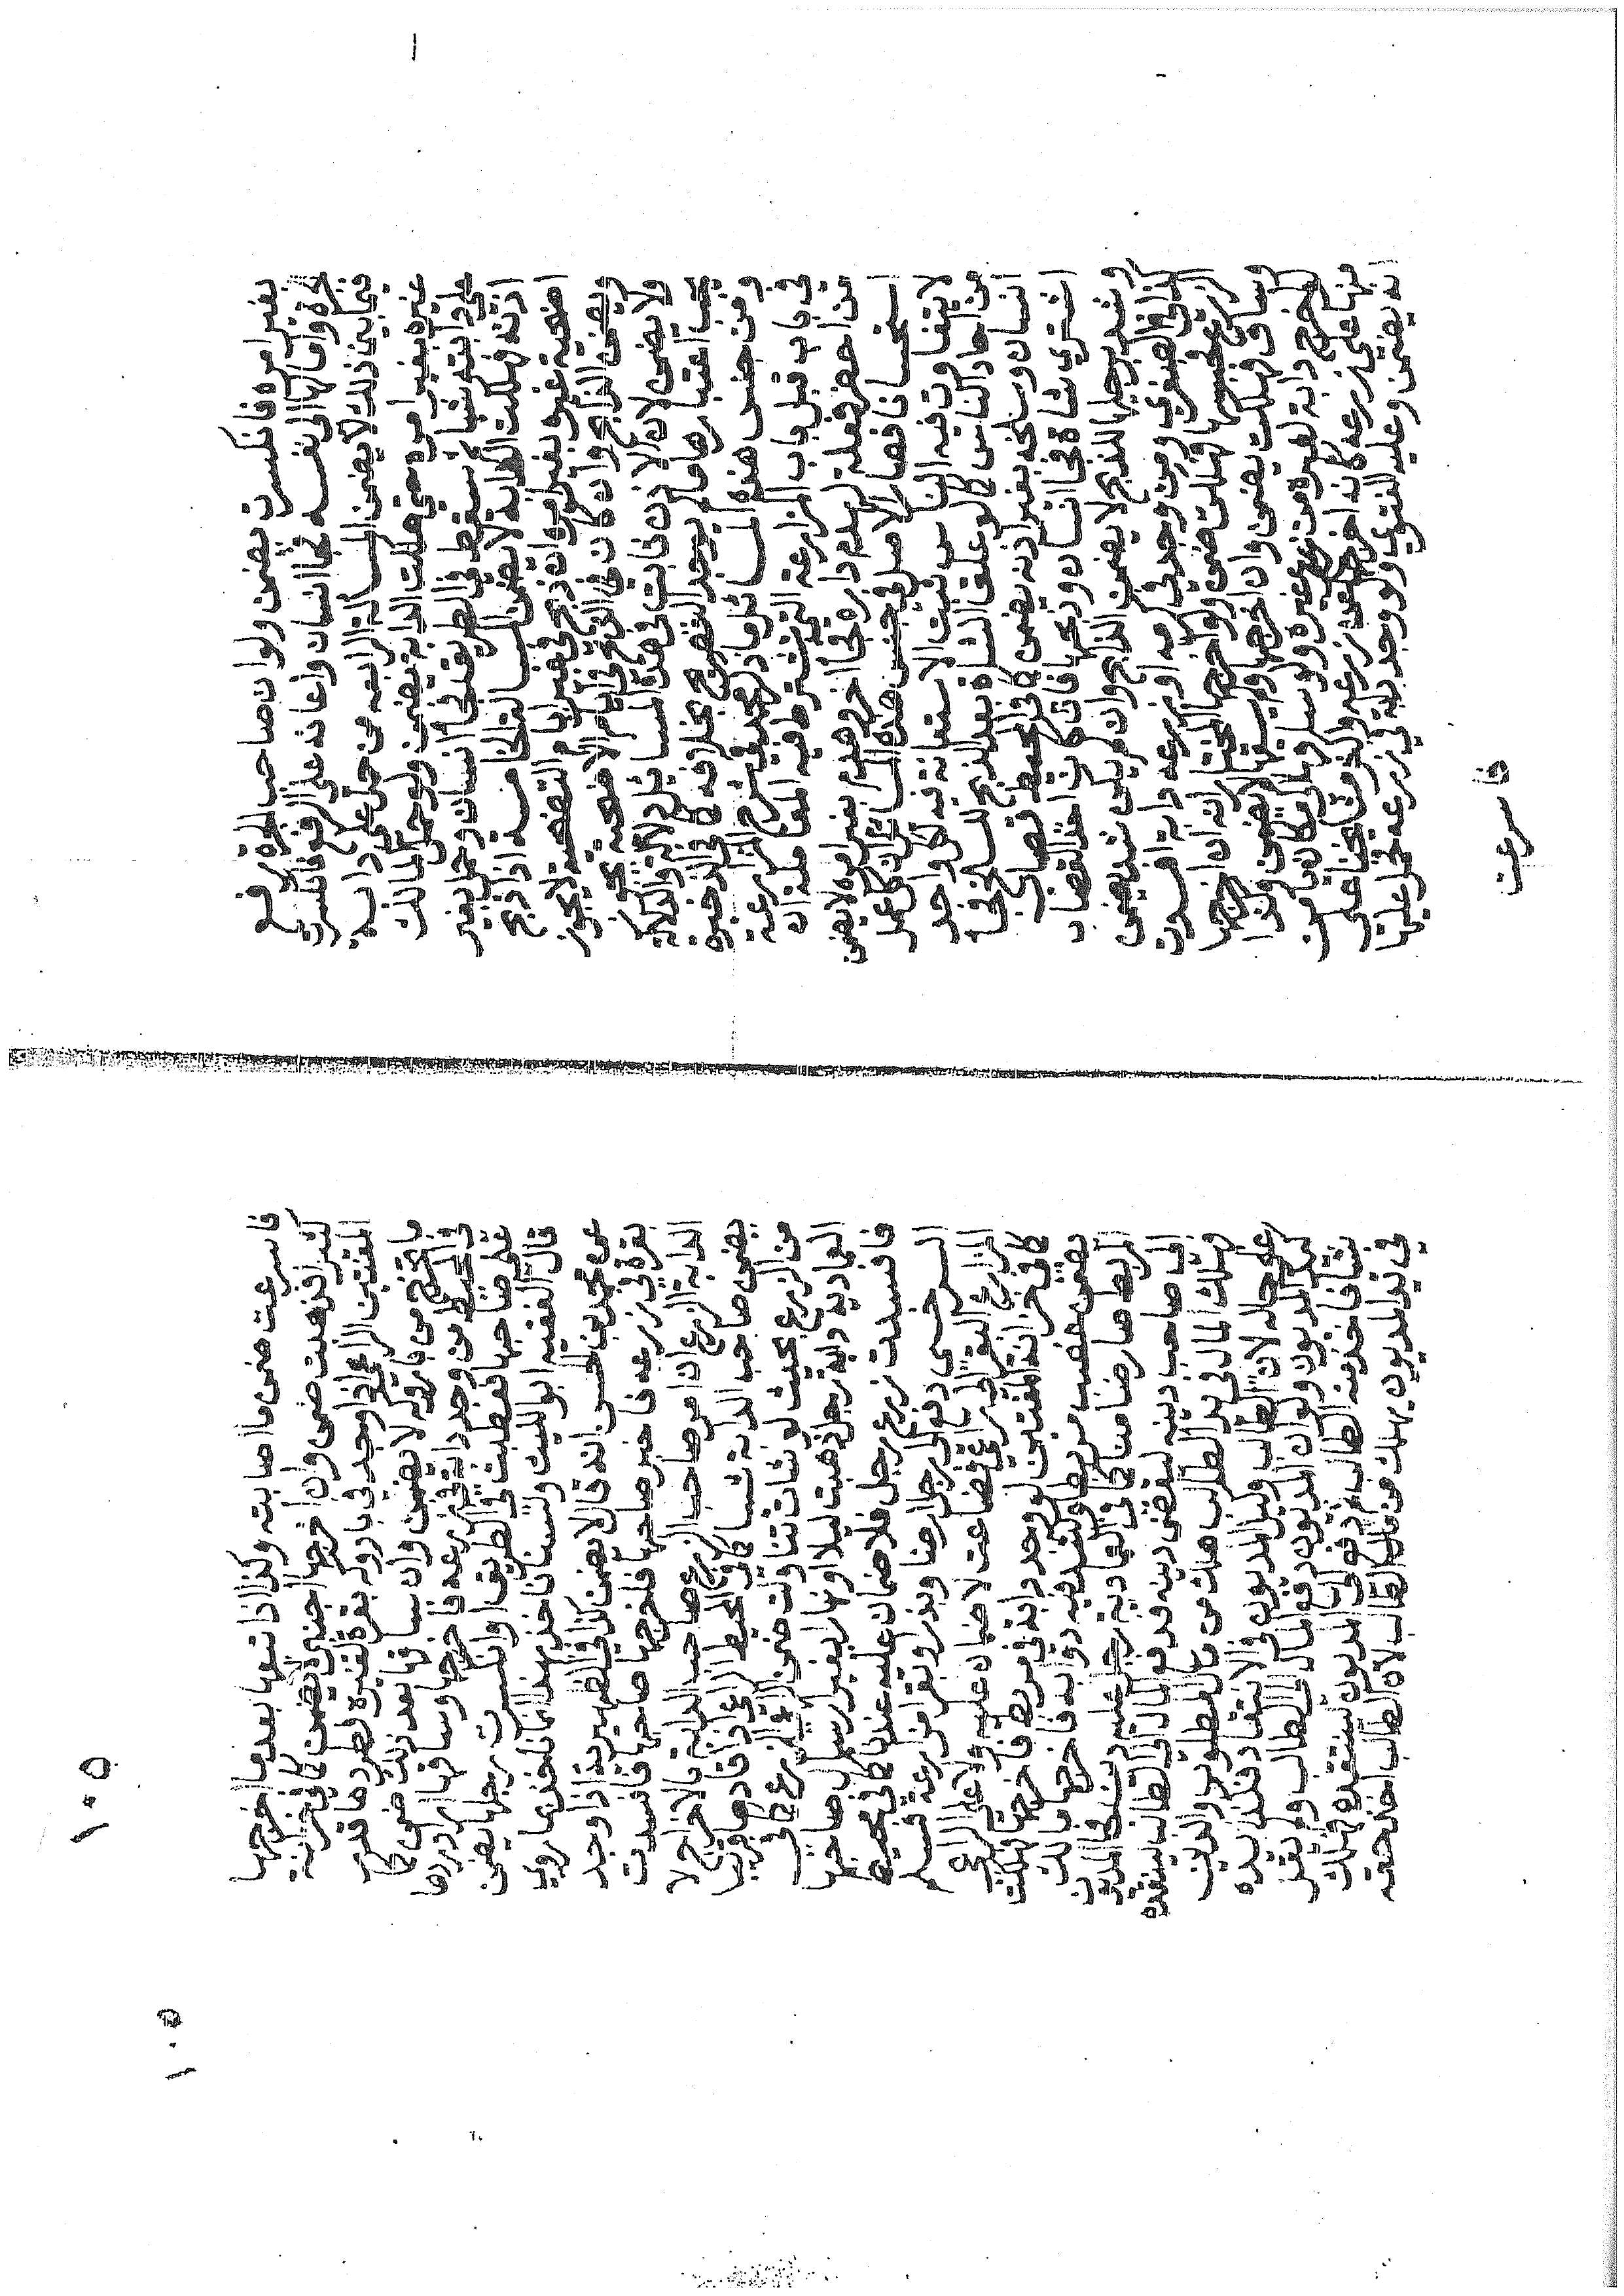 بغير امره فانكسرت يضمن ولو ان صاحب الجرة رفع
جرة وامالها الى نفسه فجا انسان واعانه على الرفع فانكسرت
فيما بين ذلك لا يضمن المسالة الرابعة من حمل على دابة
غيره بغير امره حتى هلكت الدابة يضمن ولو حمل المالك
على دابته شيا ثم سقط في الطريق فجا انسان وحمل بغير
اذنه فهلكت الدابة لا يضمن المسالة الخامسة اذا ذبح
اضحية غيره بغير امره ان ذبح في غير ايام التضحية لا يجوز
ويضمن الذابح وان كان في الذبح في ايام الاضحية يجوز
ولا يضمن لان الاذن ثابت في هذه المسائل دلالة والدلالة
يجب اعتبارها ما لم يوجد التصريح بخلافه كما في الذخيرة
ومن جنس هذه المسائل ما ذكر محمد في شرح المزارعة
في باب قبل باب المزارعة التي تشترط فيه المعاملة ان
من احضر فعلة لهدم داره فجا اخر وهدم بغير امره لا يضمن
استحسانا فصار الاصل في جنس هذه المسائل ان كل عمل
لا يتفاوت فيه الناس تثبت الاستعانة فيه لكل واحد
من احاد الناس كما لو علق الشاة بعد الذبح للسلخ فجا
انسان وسلخه بغير اذنه يضمن كما في المحيط قصاب
اشترى شاة فجا انسان وذبحها فان كان اخذ القصاب
وشد رجلها للذبح لا يضمن الذابح وان لم يكن شد يضمن
كذا في الصغرى ومن وجد في كرمه او زرعه دابة افسدت
الزرع فحبسها فهلكت ضمن ولو اخرجها المختار انه ان اخرجها
وساق فهلكت يضمن وان اخرجها ولم يسقها لا يضمن وكذا
لو اخرج دابة لغيره من زرع غيره ولو ساقها الى مكان يامن
منها على زرعه كانه اخرجها عن زرعه واكثر مشايخنا على
انه يضمن وعليه الفتوى ولو وجد دابة في زرعه فحمل عليها
فاسرعت
١٠٥
١٠٥
فاسرعت ضمن ما اصابته وكذا اذا تبعها بعد ما اخرجها
فذهبت ضمن وان اخرجها اجنبي لا يضمن كما في خزانة
المفتين الراعي اذا وجد في باروكه بقرة لغيره فطردها قدر
ما تخرج من باروكه لا يضمن وان ساقها بعد ذلك ضمن كما
في المحيط من وجد دابة في زرعه فاخرجها وساقها ليردها
على صاحبها فعطبت في الطريق او انكسرت رجلها يضمن
قال الفقيه ابو الليث ولسنا ناخذ بهذا انما ناخذ بما روي
عن محمد بن الحسن انه قال لا يضمن كذا في الظهيرية اذا وجد
بقرة في زرعه فاخبر صاحبها فاخرجها صاحبها فافسدت
الدابة الزرع ان امر صاحب الزرع صاحب الدابة بالاخراج لا
يضمن صاحب الدابة شيا كما في المحيط الراعي اذا قادها قريبا
من الزرع بحيث لو شات تناولت ضمن الزرع كما في
العمادية دابة رجل ذهبت ليلا او نهارا بغير ارسال صاحبها
فافسدت زرع رجل فلا ضمان عليه عندنا كما في محيط
السرخسي دفع الى رجل ارضا وبذرا وبقرا مزارعة فسلم
المزارع البقر الى الراعي فضاعت لا ضمان عليه ولا على الراعي
كما في خزانة المفتين لو وجد دابة في مربطه فاخرجها فهلكت
يضمن غصب مربطا وشد فيه دوابه فاخرجها مالك
المربط صار ضامنا كما في العمادية رجل عليه دين فجا المديون
الى صاحب دينه ليقضي دينه فدفع المال الى الطالب لينقده
فهلك المال في يد الطالب هلك من مال المطلوب والدين
على حاله لان الطالب وكيل المديون في الانتقاد فكان يده
كيد المديون ولو ان المديون دفع المال الى الطالب ولم يقل
شيا فاخذ منه الطالب ثم دفع الى المديون لينقده فهلك
في يد المديون يهلك من مال الطالب لان الطالب اخذ حقه